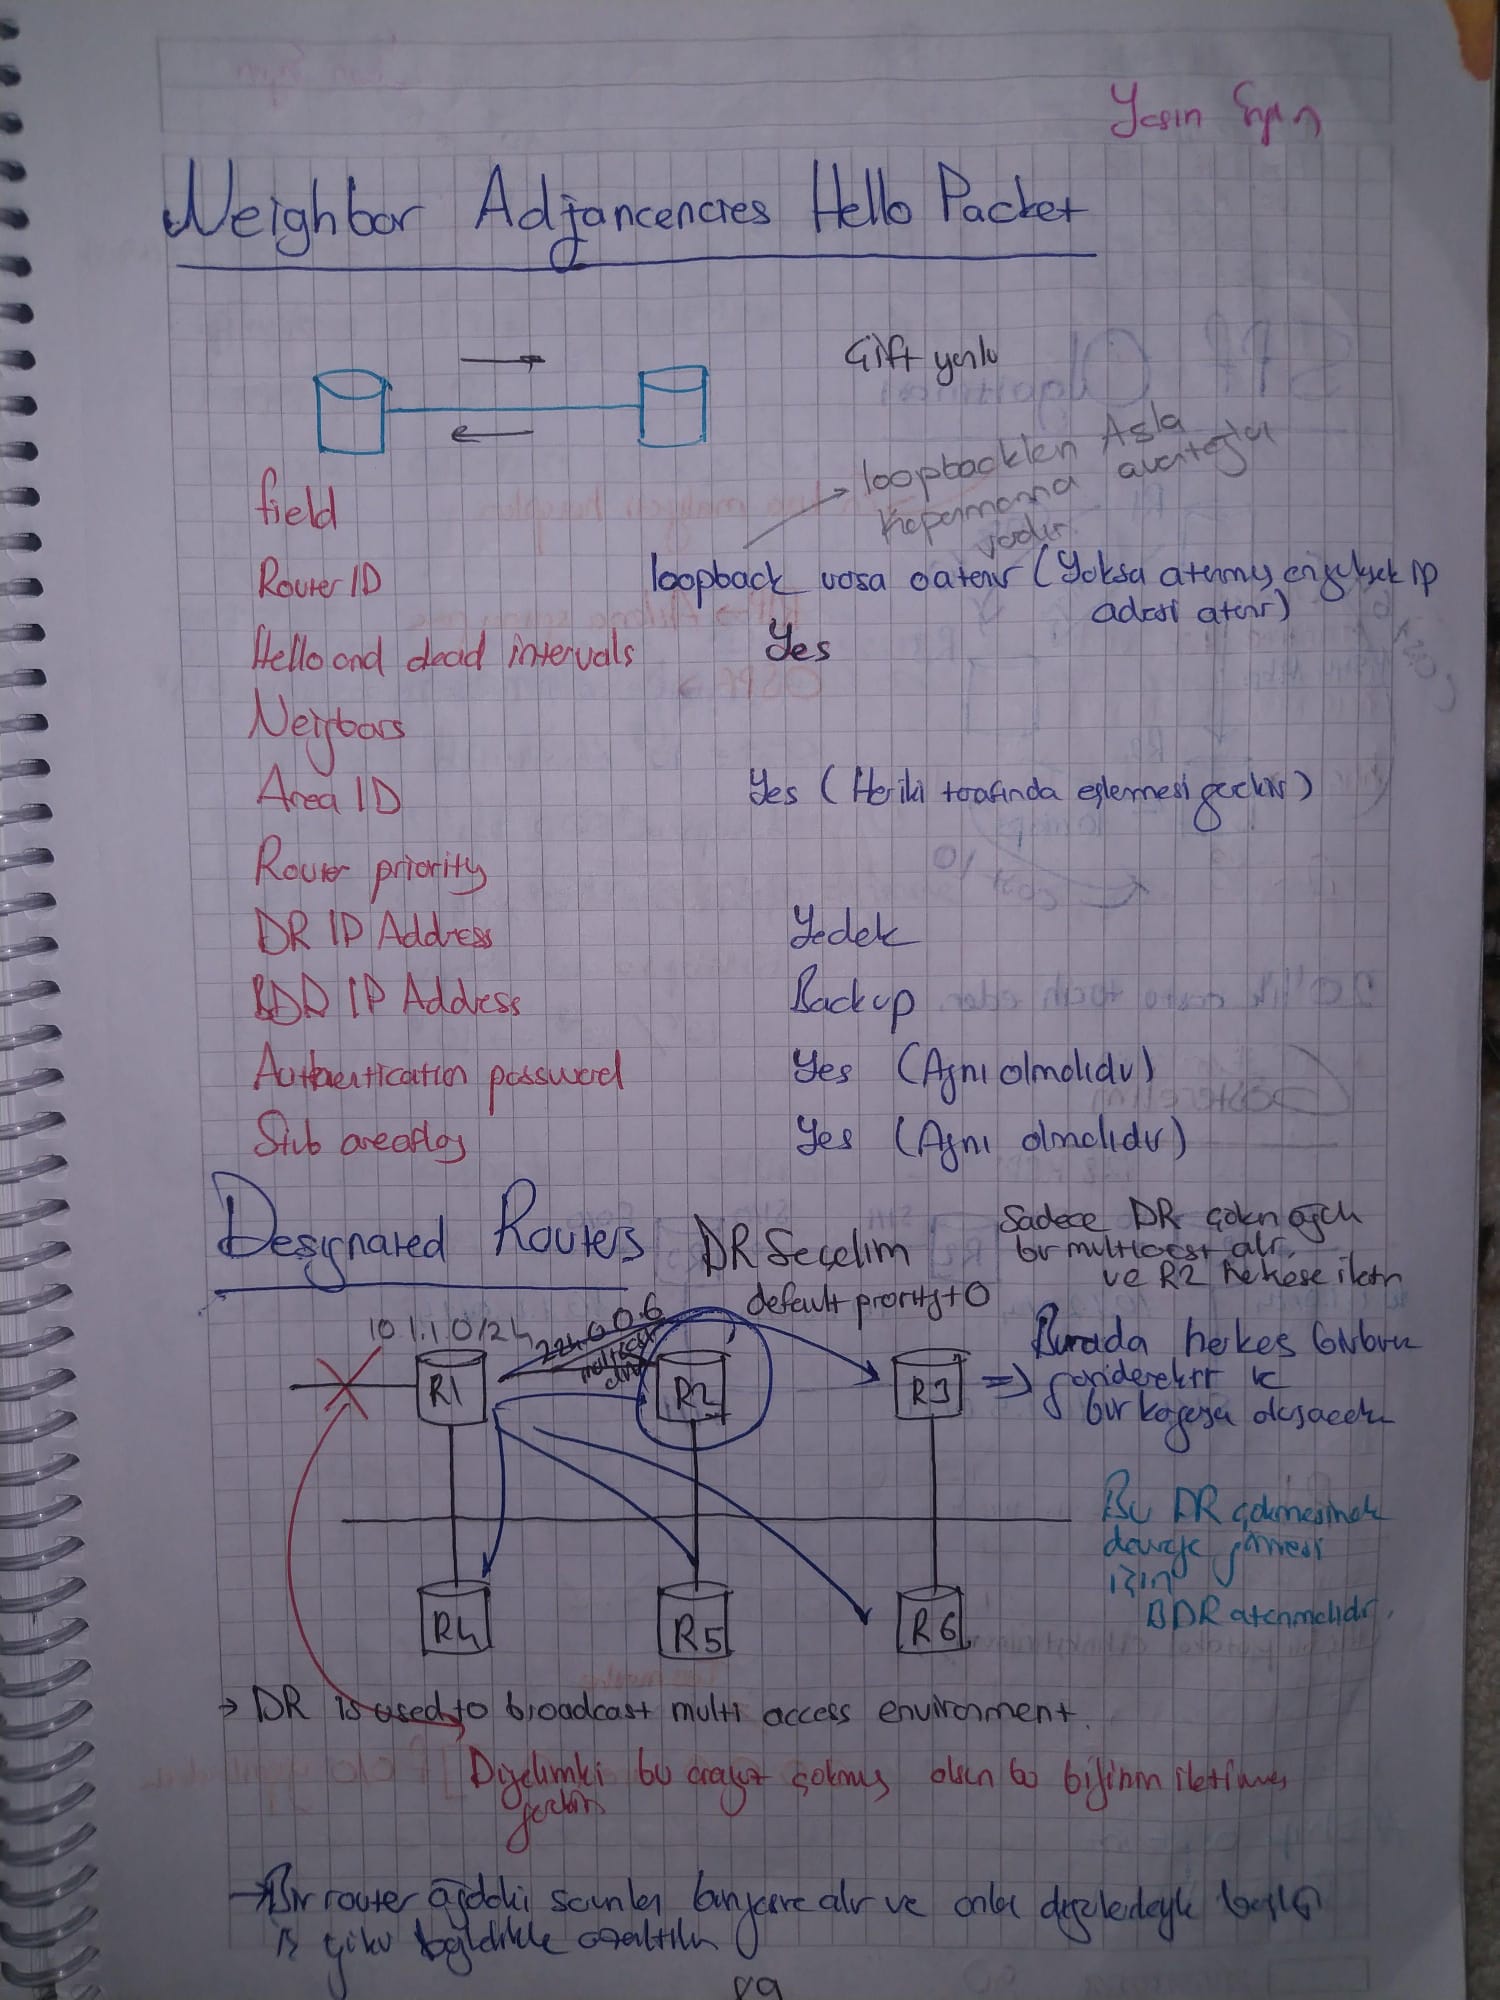 Yasin
Neighbor Adjancencies Hello Packet
Çift yönlü
loopbacklen Asla
kapanmama avantajı
vardır
field
Router ID loopback varsa o atanır (Yoksa atanmış en yüksek ip
adresi atanır)
Hello and dead intervals Yes
Neigbors
Area ID Yes (Her iki tarafında eşlemesi gerekir)
Router priority
DR IP Address Yedek
BDR IP Address Backup
Authentication password Yes (Aynı olmalıdır)
Stub area flag Yes (Aynı olmalıdır)
Designated Routers DR Seçelim
default priority + 0
Sadece DR
bir multicast alır.
ve R2 herkese iletir
10.1.1.0/24
224.0.0.6
multicast
R1 R2 R3
Burada herkes birbirine
gönderecektir
bir kargaşa oluşacak
Bu DR çökmesinde
devreye girmesi
için
BDR atanmalıdır.
R4 R5 R6
→ DR is used to broadcast multi access environment.
Diyelimki bu arayüz çökmüş olsun bu bilginin iletilmesi
gerekir
→ Bir router ağdaki sorunları ve onlar
89